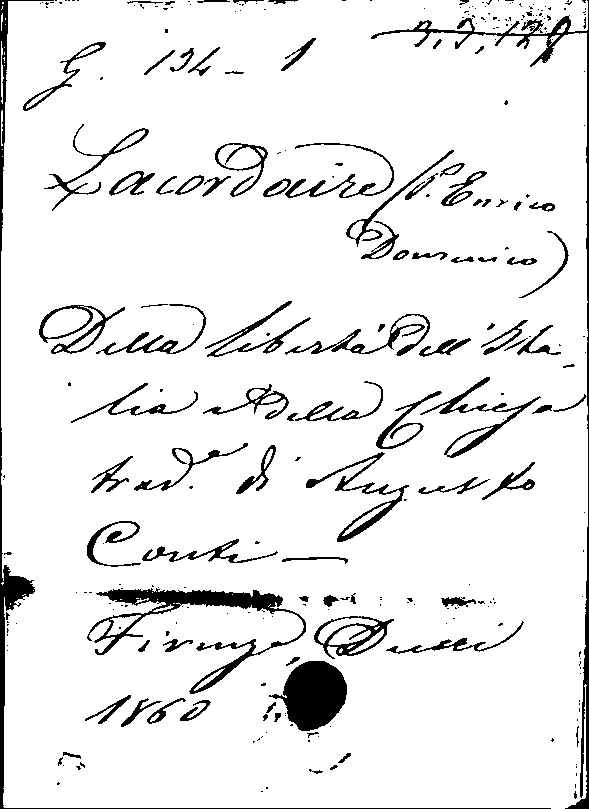 3,3,128
G. 134 - 1
Lacordaire (P. Enrico
Domenico)
Della libertà dell'Ita-
lia e della Chiesa
trad.e di Augusto
Conti —
Firenze, Ducci
1860